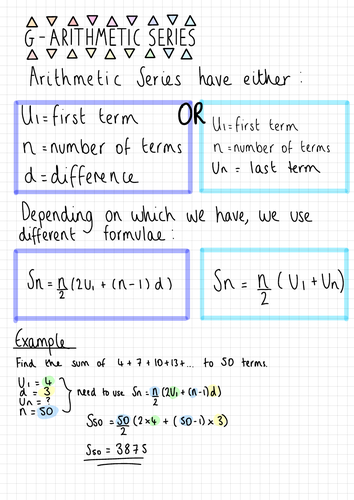 G-ARITHMETIC SERIES
Arithmetic Series have either:
U₁=first term
n=number of terms
d=difference
OR
U₁=first term
n=number of terms
Uₙ = last term
Depending on which we have, we use
different formulae:
Sn = n/2 (2U₁ + (n-1) d)
Sn = n/2 (U₁ + Uₙ)
Example
Find the sum of 4+7+10+13+... to 50 terms.
U₁ = 4
d = 3
Uₙ = ?
n = 50
need to use Sn = n/2 (2U₁ + (n-1)d)
S₅₀ = 50/2 (2×4 + (50-1) × 3)
S₅₀ = 3875